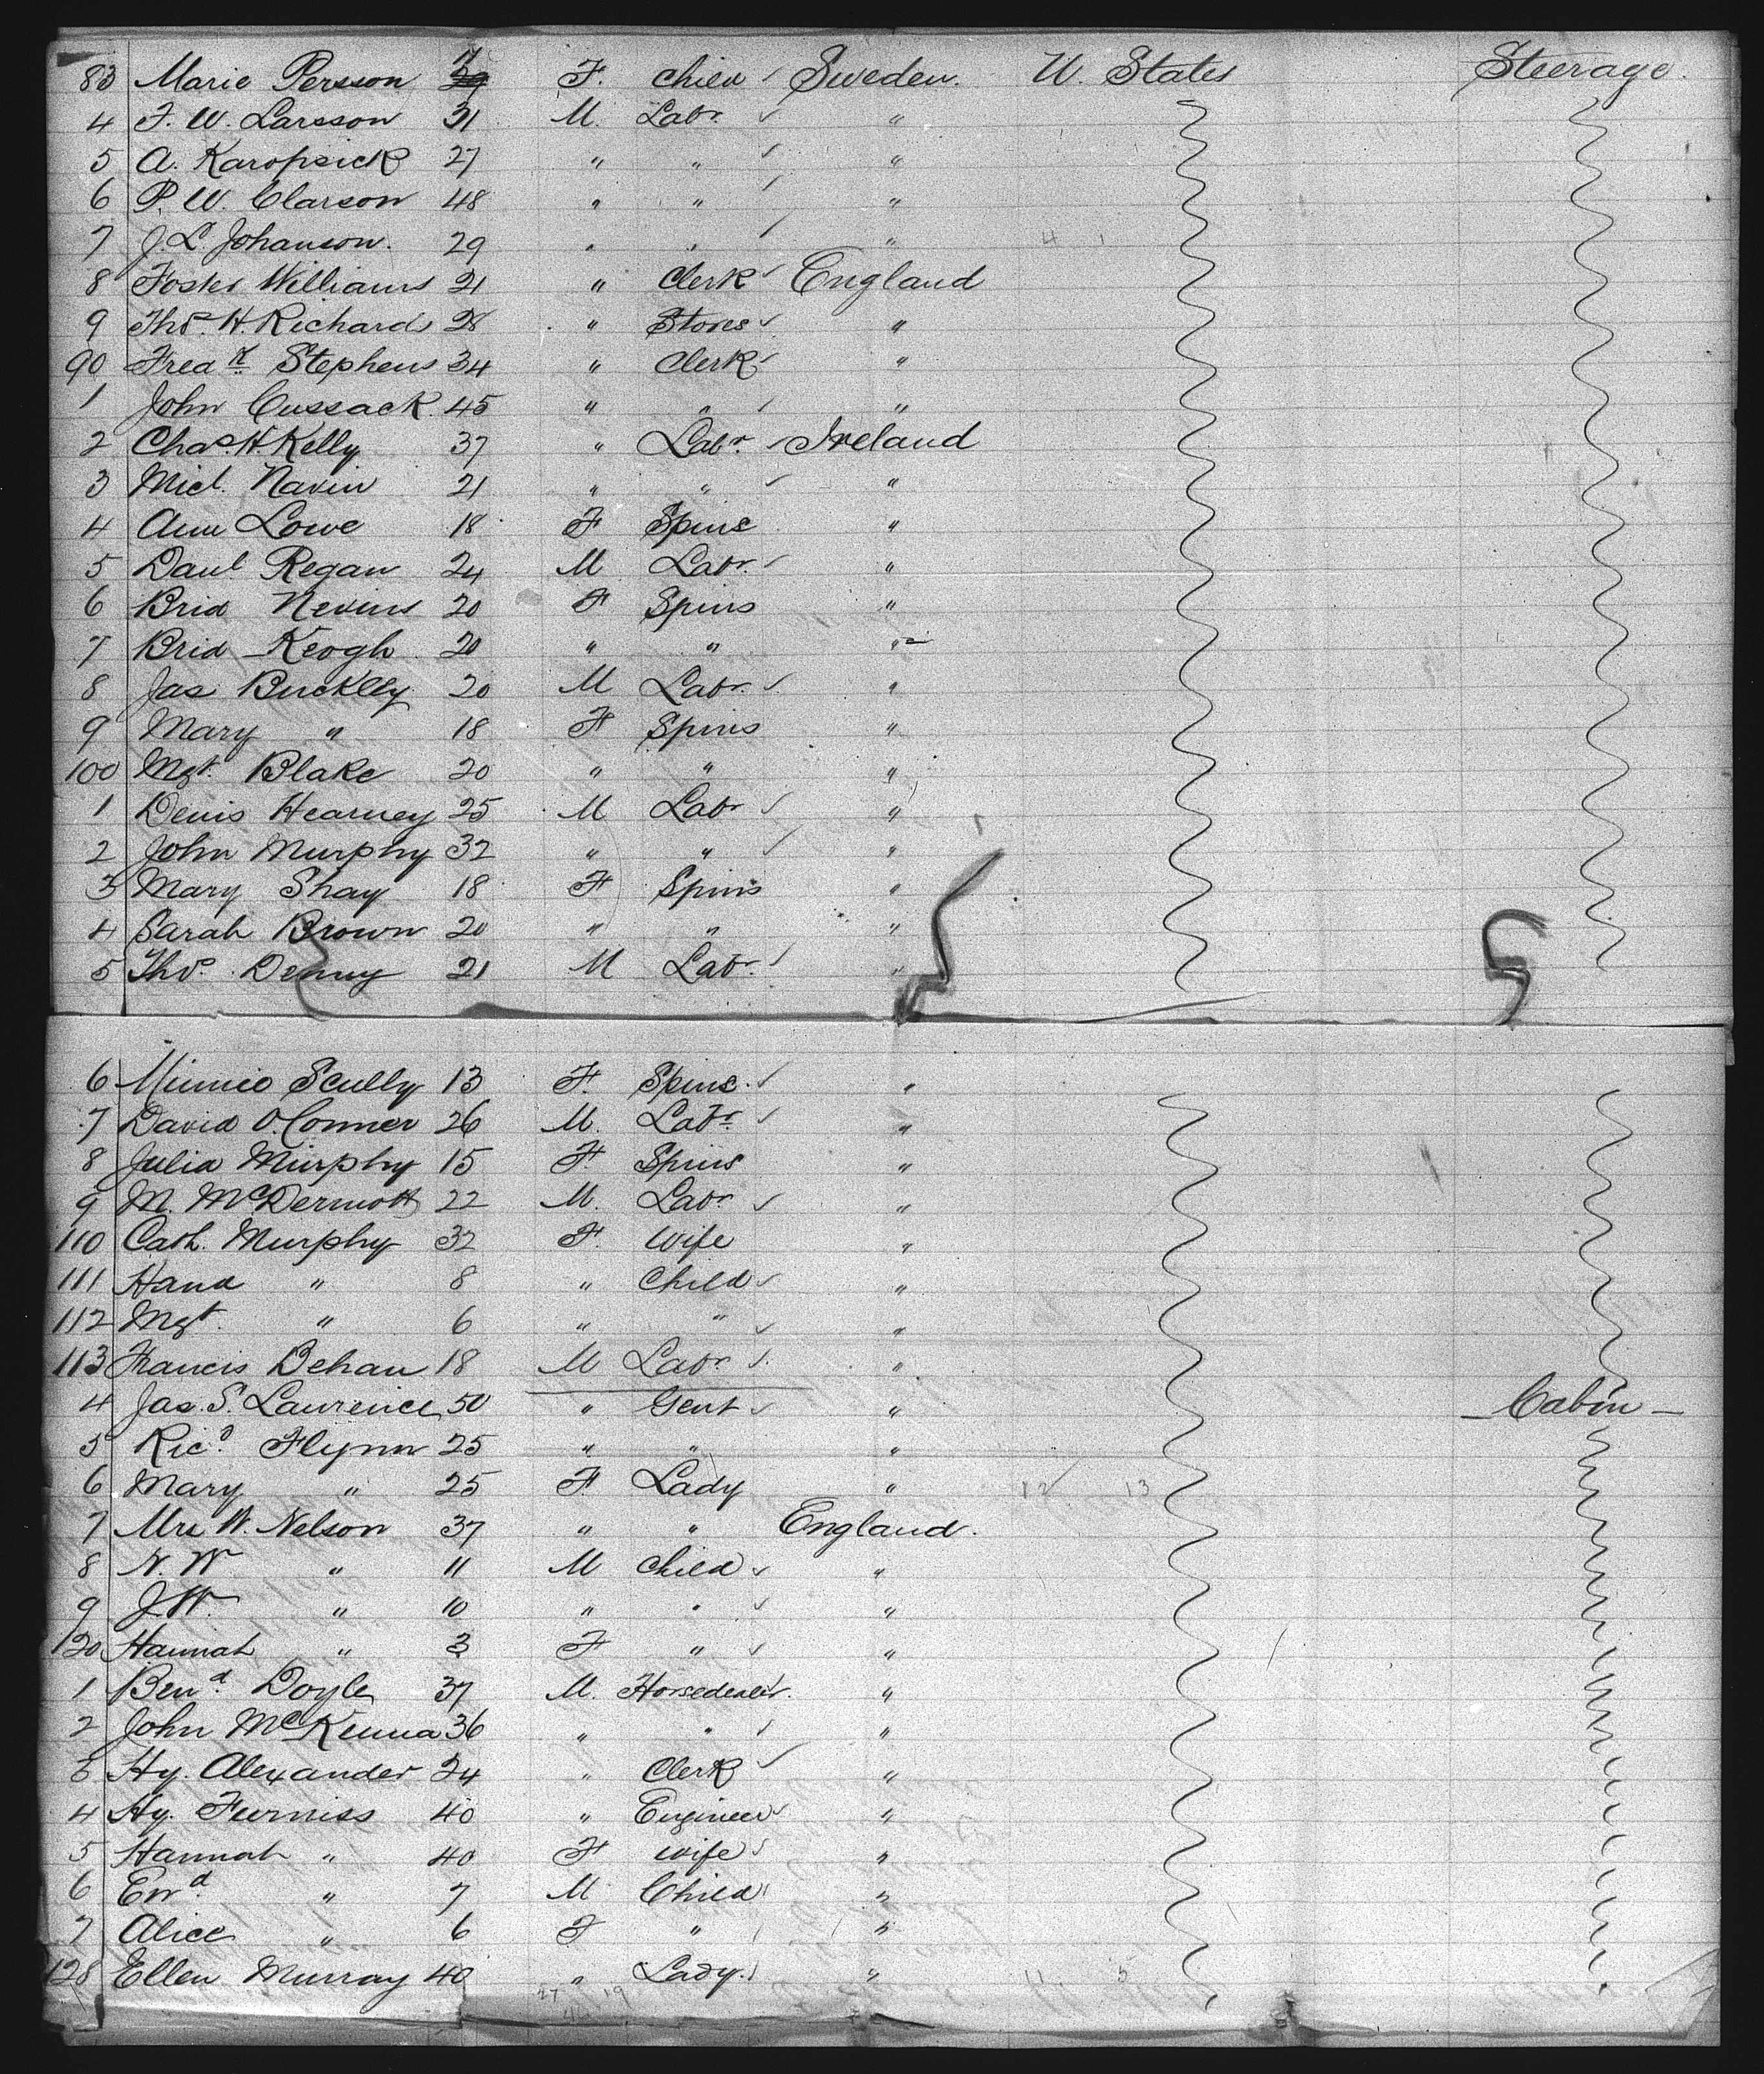 83 Marie Persson 7 F. Child Sweden. U. States Steerage.
4 F. W. Larsson 31 M. Labr. "
5 A. Karopsick 27 " " "
6 P. W. Clarson 48 " " "
7 J. L. Johanson. 29 " " "
8 Foster Williams 21 " Clerk England
9 Thos. H. Richards 28 " Stores "
90 Fredk. Stephens 34 " Clerk "
1 John Cussack. 45 " " "
2 Chas. H. Kelly 37 " Labr. Ireland
3 Micl. Navin 21 " " "
4 Ann Lowe 18 F Spins "
5 Danl. Regan 24 M Labr. "
6 Brid Nevins 20 F Spins "
7 Brid Keogh 20 " " "
8 Jas Buckley 20 M Labr. "
9 Mary " 18 F Spins "
100 Mgt. Blake 20 " " "
1 Denis Hearney 25 M Labr "
2 John Murphy 32 " " "
3 Mary Shay 18 F Spins "
4 Sarah Brown 20 " " "
5 Thos. Denny 21 M Labr. "
6 Minnie Scully 13 F. Spins. "
7 David O'Conner 26 M. Labr. "
8 Julia Murphy 15 F. Spins "
9 M. McDermott 22 M. Labr. "
110 Cath. Murphy 32 F. Wife "
111 Hana " 8 " Child "
112 Mgt. " 6 " " "
113 Francis Behan 18 M Labr. "
4 Jas. S. Laurence 50 " Gent " - Cabin -
5 Ricd. Flynn 25 " " "
6 Mary " 25 F. Lady "
7 Mrs W. Nelson 37 " " England.
8 N. W " 11 M Child "
9 J W. " 10 " " "
120 Hannah " 3 F " "
1 Bend. Doyle 37 M. Horsedealer. "
2 John McKenna 36 " " "
3 Hy. Alexander 24 " Clerk "
4 Hy. Furniss 40 " Engineer "
5 Hannah " 40 F wife "
6 Ewd. " 7 M Child "
7 Alice " 6 F " "
128 Ellen Murray 40 " Lady. "